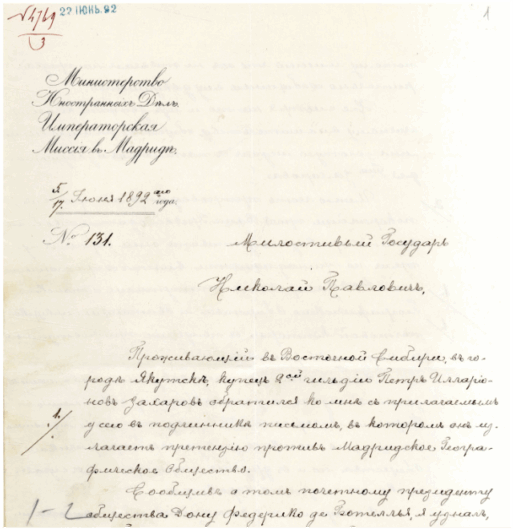 № 4769
3
22 ІЮНЬ.92
1
Министерство
Иностранныхъ Дѣлъ.
Императорская
Миссія въ Мадридѣ.
5/17 Іюня 1892 го года.
№ 131.
Милостивый Государь
Николай Павловичъ,
Проживающій въ Восточной Сибири, въ го-
родѣ Якутскѣ, купецъ 2ой гильдіи Петръ Илларіо-
новъ Захаровъ обратился ко мнѣ съ прилагаемымъ
у сего въ подлинникѣ письмомъ, въ которомъ онъ из-
1/.
лагаетъ претензію противъ Мадридское Геогра-
фическое Общество.
Сообщивъ о томъ почетному президенту
общества Дону Федерико де Ботелья, я узналъ,